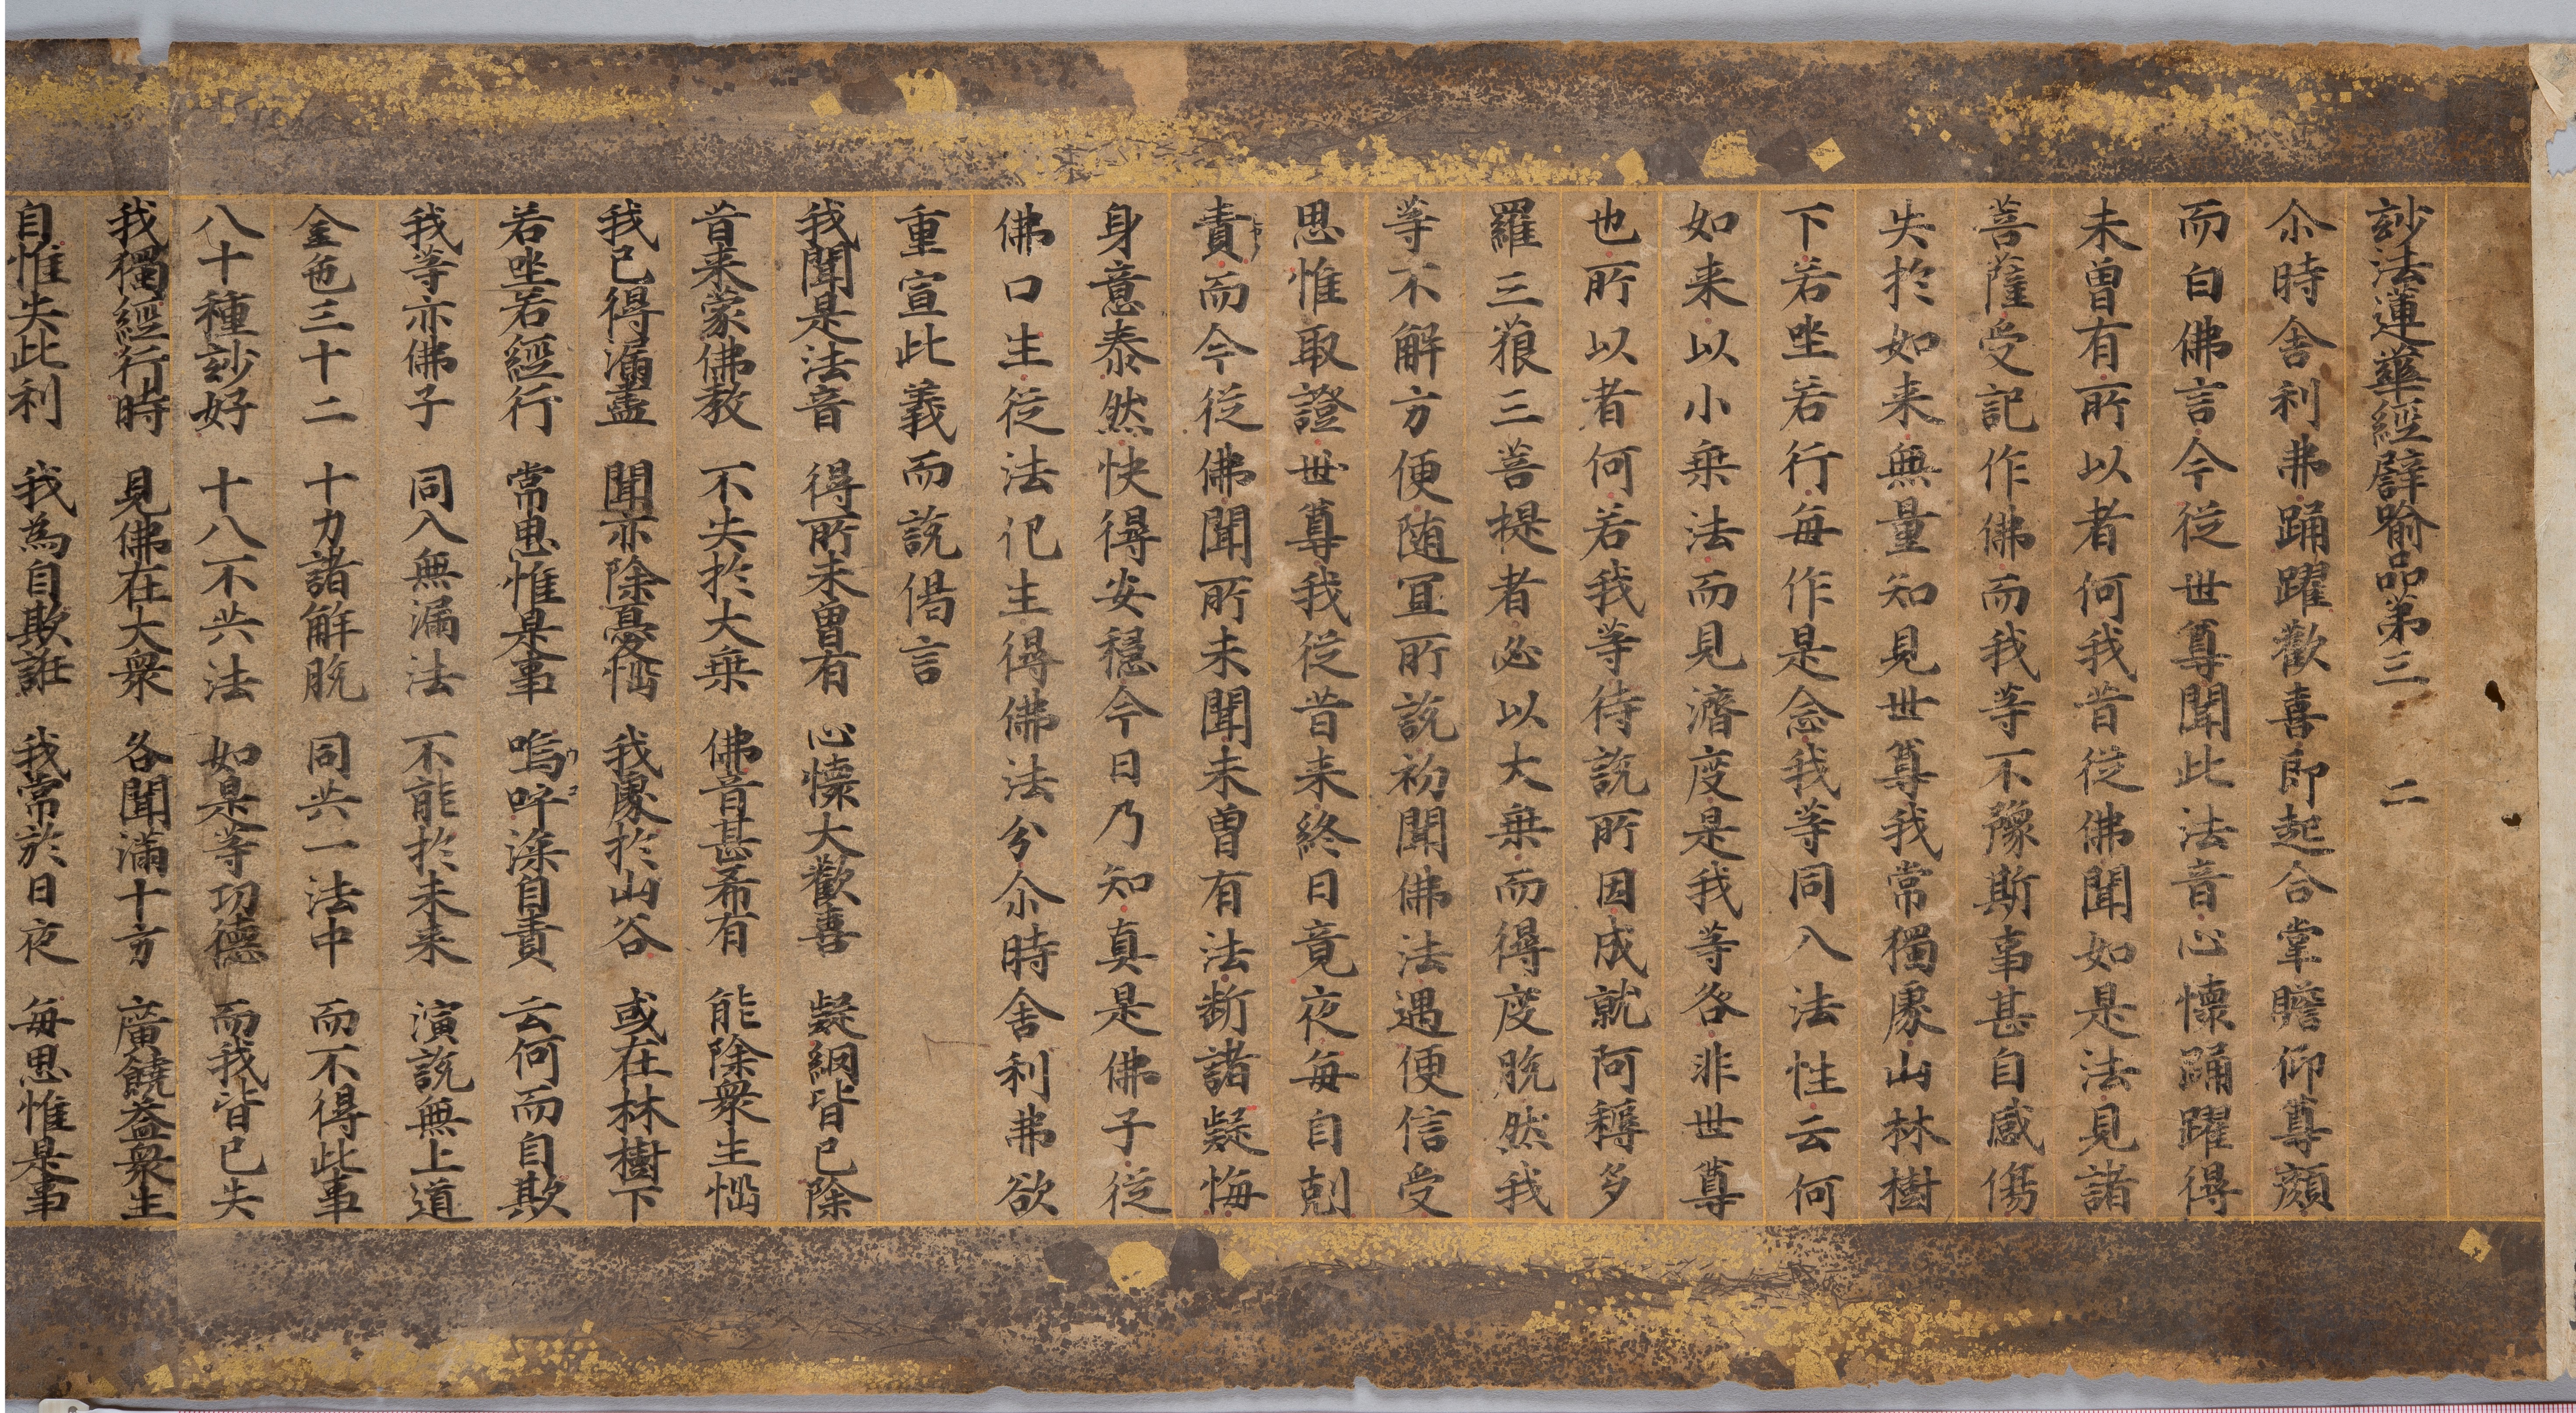 妙法蓮華經譬喻品第三　二
尒時舎利弗踊躍歡喜即起合掌瞻仰尊顔
而白佛言今従世尊聞此法音心懐踊躍得
未曽有所以者何我昔従佛聞如是法見諸
菩薩受記作佛而我等不豫斯事甚自感傷
失於如来無量知見世尊我常獨處山林樹
下若坐若行毎作是念我等同入法性云何
如来以小乗法而見濟度是我等咎非世尊
也所以者何若我等待説所因成就阿耨多
羅三藐三菩提者必以大乗而得度脱然我
等不解方便随冝所説初聞佛法遇便信受
思惟取證世尊我従昔来終日竟夜毎自剋
責而今従佛聞所未聞未曽有法断諸疑悔
身意泰然快得安穏今日乃知真是佛子従
佛口生従法化生得佛法分尒時舎利弗欲
重宣此義而説偈言
我聞是法音　得所未曽有　心懐大歡喜　疑網皆已除
昔来蒙佛教　不失於大乗　佛音甚希有　能除衆生惱
我已得漏盡　聞亦除憂惱　我處於山谷　或在林樹下
若坐若經行　常思惟是事　嗚呼深自責　云何而自欺
我等亦佛子　同入無漏法　不能於未来　演説無上道
金色三十二　十力諸解脱　同共一法中　而不得此事
八十種妙好　十八不共法　如是等功徳　而我皆已失
我獨經行時　見佛在大衆　名聞滿十方　廣饒益衆生
自惟失此利　我為自欺誑　我常於日夜　毎思惟是事